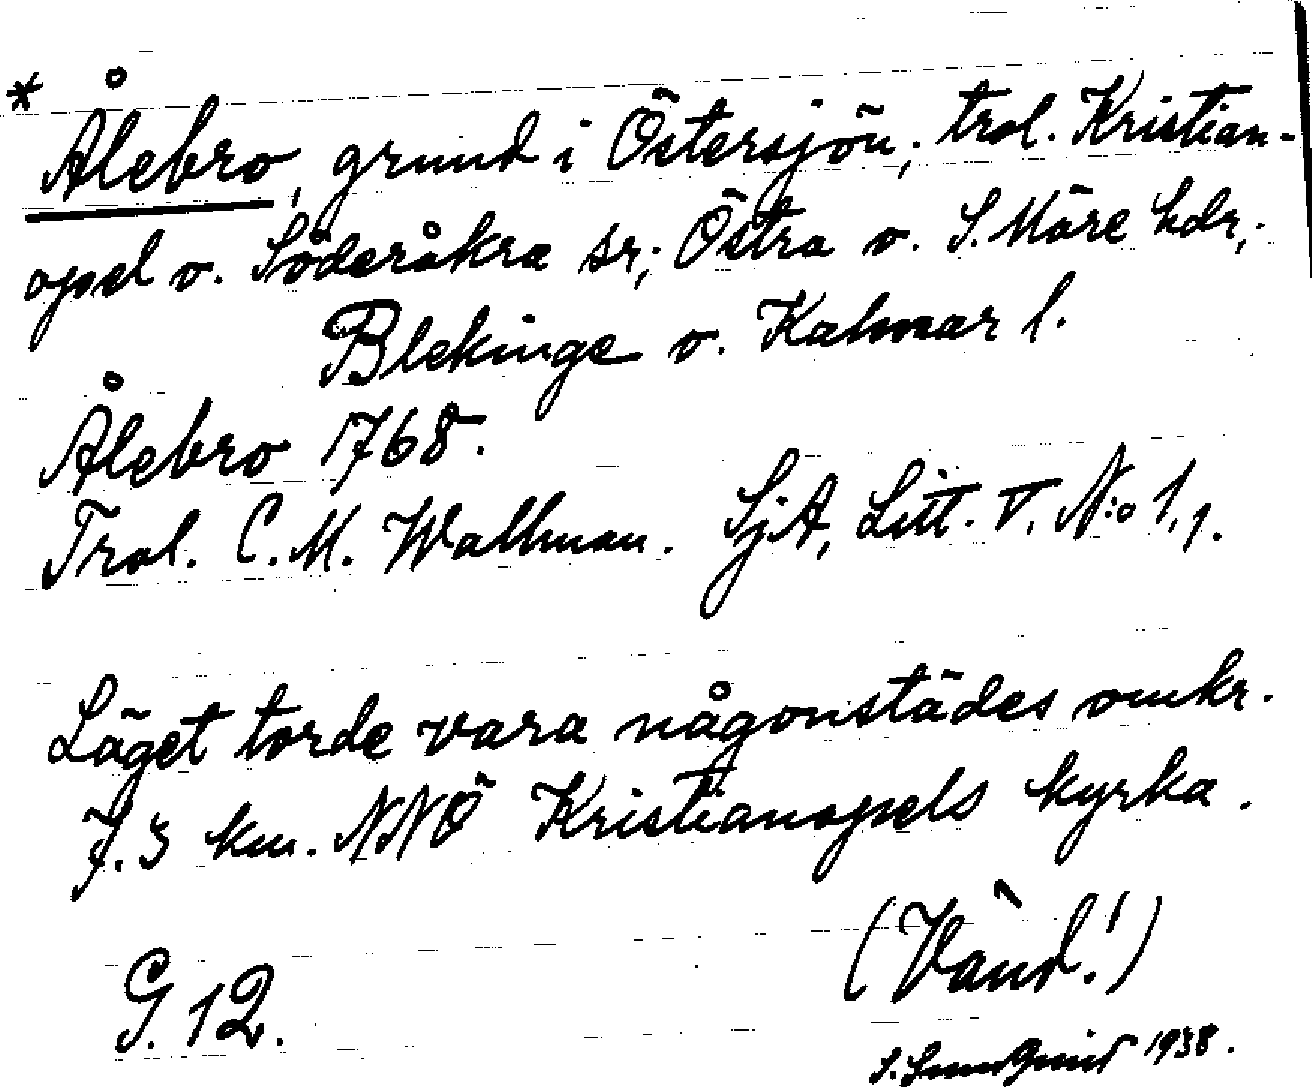 * Ålebro, grund i Östersjön; trol. Kristian-
opel o. Söderåkra sr; Östra o. S. Möre hdr;
Blekinge o. Kalmar l.
Ålebro 1768.
Trol. C. M. Wallman. SjA, Litt. V. N:o 1,1.
Läget torde vara någonstädes omkr.
7.3 km. NNÖ Kristianopels kyrka.
(Vänd!)
G. 12.
1938.